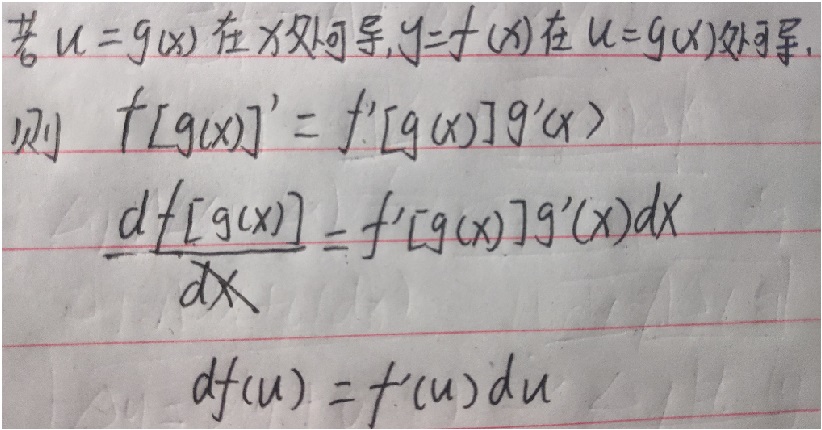 若 u=g(x) 在 x 处可导, y=f(x) 在 u=g(x) 处可导.
则 f[g(x)]' = f'[g(x)]g'(x)
df[g(x)]/dx = f'[g(x)]g'(x)dx
df(u) = f'(u)du